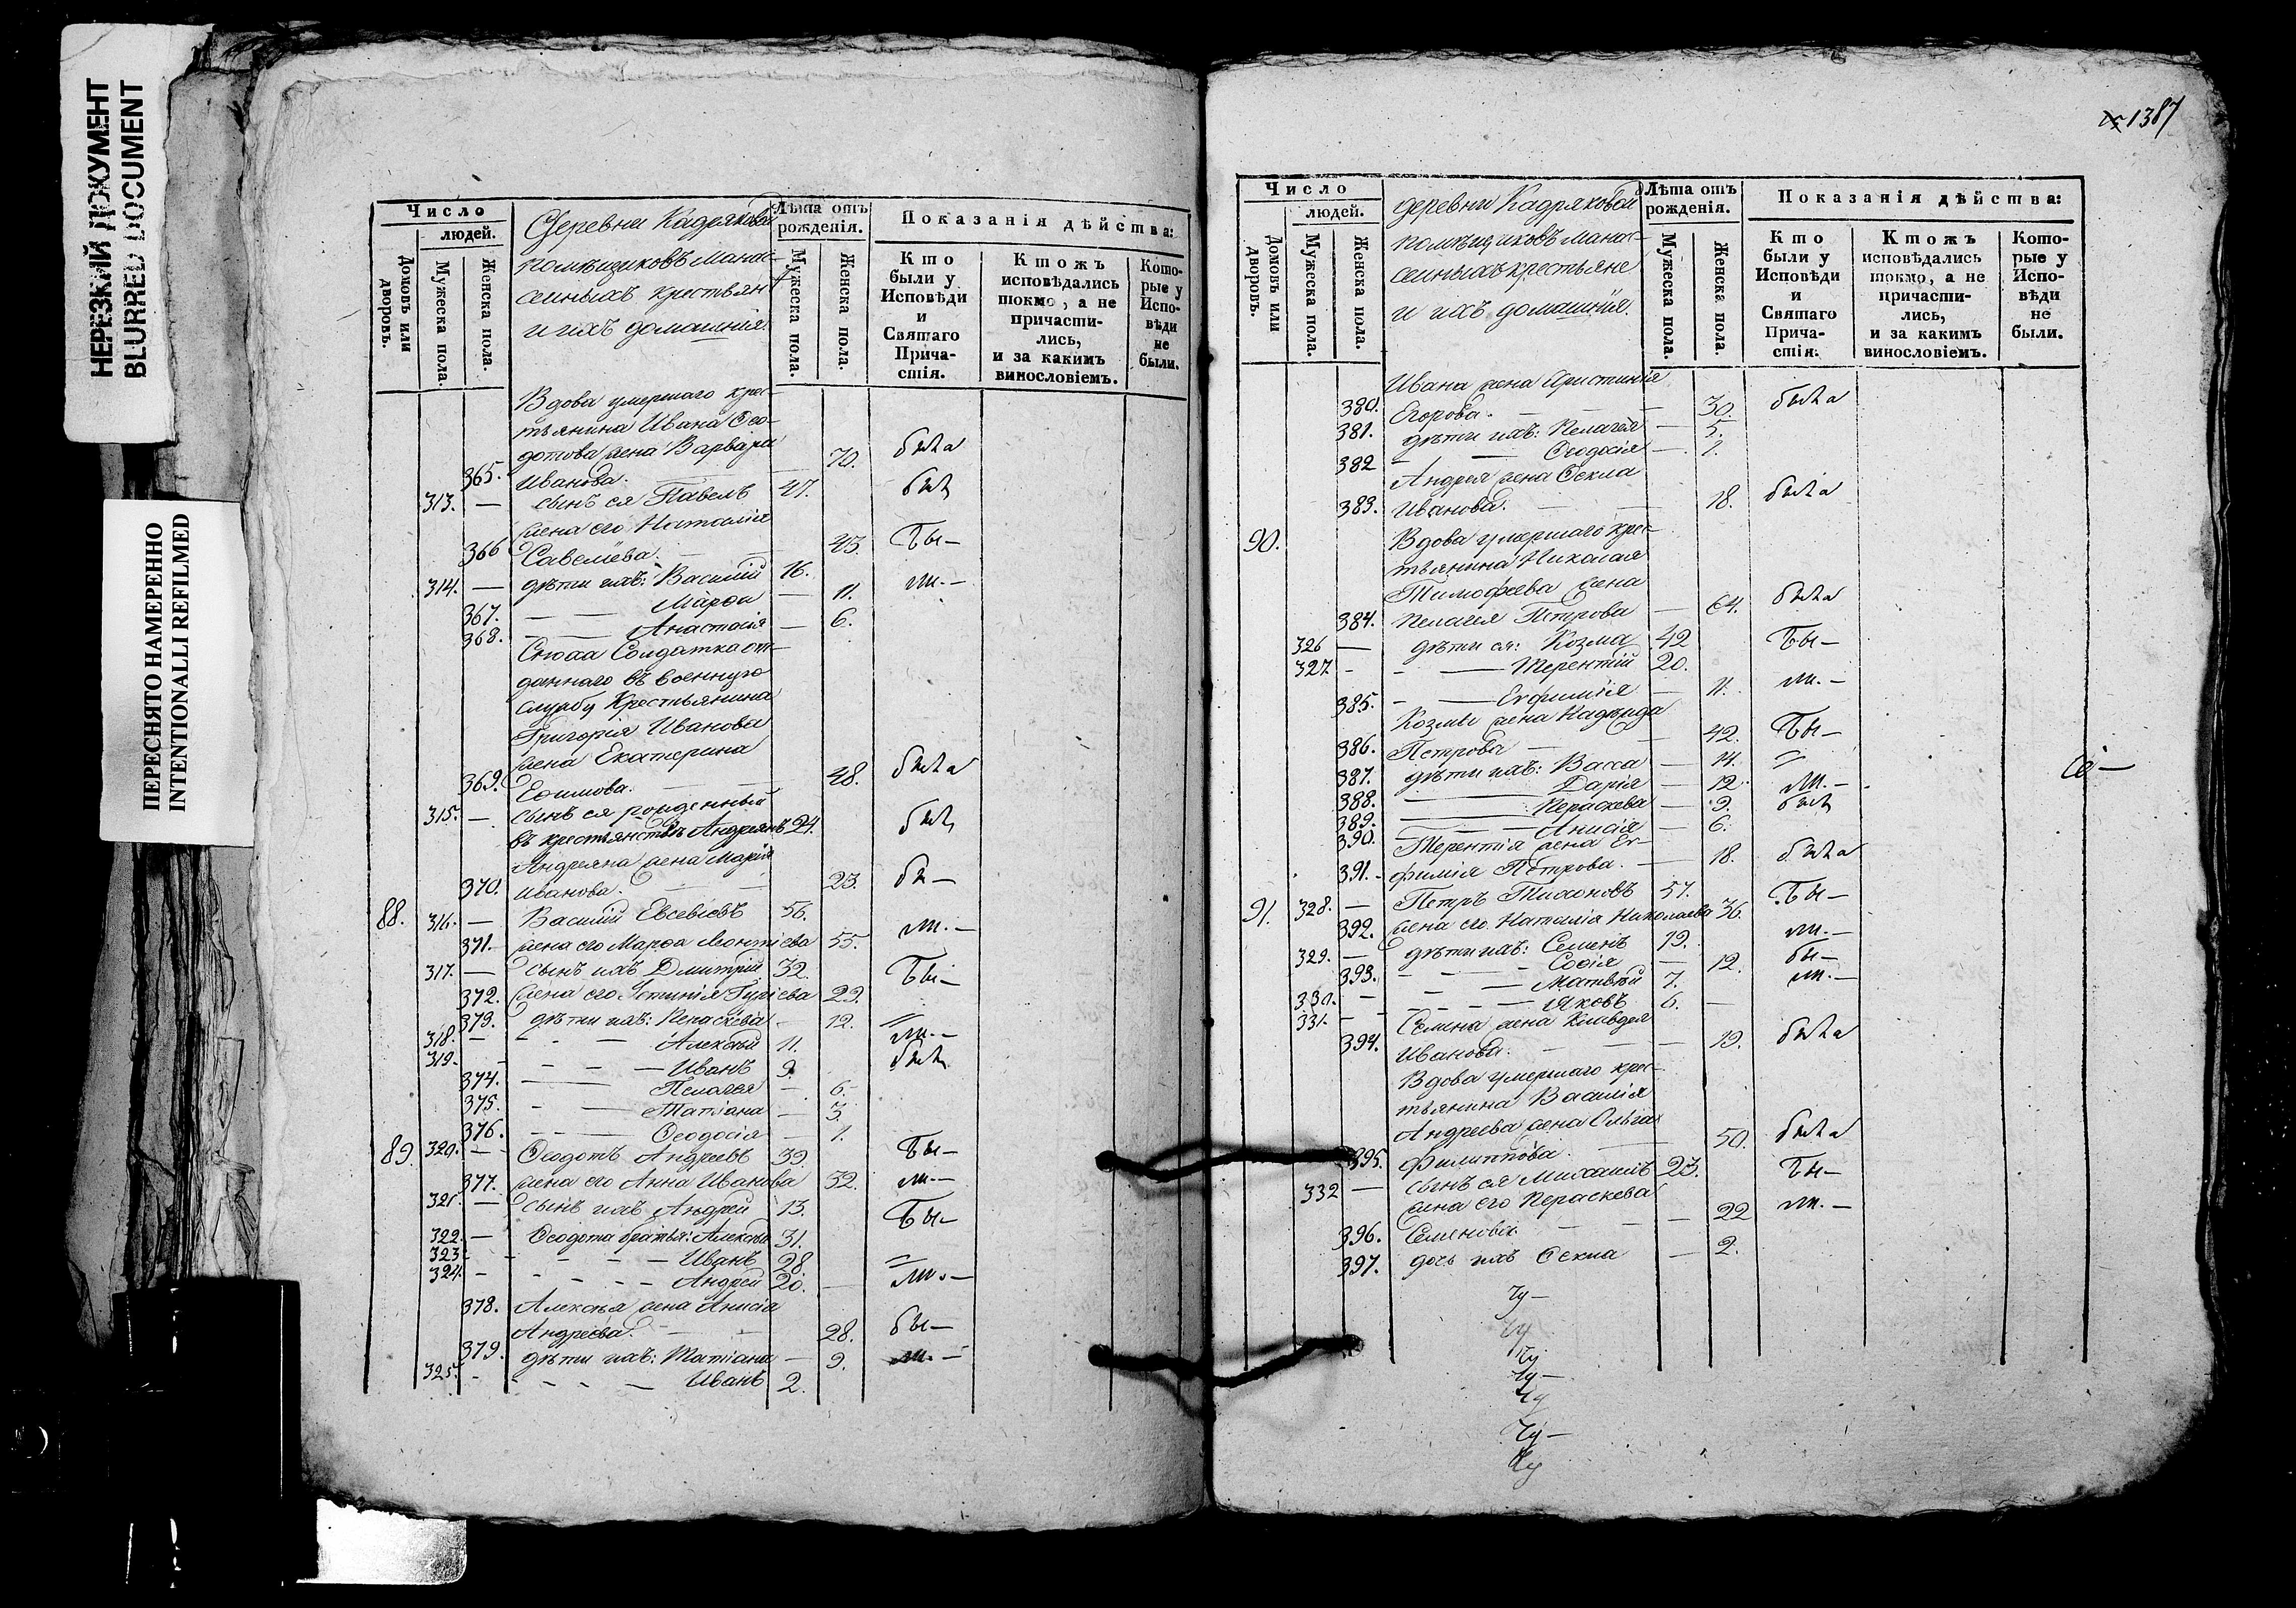 НЕРЕЗКИЙ ДОКУМЕНТ
BLURRED DOCUMENT
ПЕРЕСНЯТО НАМЕРЕННО
INTENTIONALLI REFILMED
Число
людей.
Домовъ или дворовъ.
Мужеска пола.
Женска пола.
Деревни Кадряковой
помѣщиковъ Манас-
еиныхъ крестьян
и ихъ домашнія.
Лѣта отъ рожденія.
Мужеска пола.
Женска пола.
Показанія дѣйства:
Кто были у Исповѣди и Святаго Прича-стія.
Ктожъ исповѣдались токмо, а не причасти-лись, и за какимъ винословіемъ.
Кото-рые у Испо-вѣди не были.
Вдова умершаго крес-
тьянина Ивана Ѳео-
дотова жена Варвара
365. Иванова. 70. была
313. — сынъ ея Павелъ 47. былъ
жена его Наталія
366 Савельева. 43. Бы—
314. — дѣти ихъ: Василій 16. ли.—
367. — Марѳа — 11.
368. — Анастасія — 6.
Сноха Солдатка от-
даннаго въ военную
службу Крестьянина
Григорія Иванова
жена Екатерина
369. Еѳимова. 48. была
315. — сынъ ея рожденный
въ крестьянствѣ Андреянъ 24. былъ
Андреяна жена Марія
370. Иванова. 23. бы—
88. 316. — Василій Евсевіевъ 56.
371. жена его Марѳа Леонтіева 55. ли.—
317. — сынъ ихъ Дмитрій 32. Бы—
372. жена его Устинія Гуріева 29.
373. дѣти ихъ: Пераскева — 12.
318. — Алексѣй 11. ли.—
319. — Иванъ 9. были
374. — Пелагея — 6.
375. — Татіана — 3
376. — Ѳеодосія — 1.
89. 320. — Ѳеодотъ Андреевъ 39. Бы—
377. жена его Анна Иванова 32. ли.—
321. — сынъ ихъ Андрей 13. Бы—
322. — Ѳеодота братья: Алексѣй 31.
323. — Иванъ 28.
324. — Андрей 20. ли.—
378. Алексѣя жена Анисія
Андреева. 28. бы—
379. дѣти ихъ: Татіана — 9. ли.—
325. — Иванъ 2.
1387
Число
людей.
Домовъ или дворовъ.
Мужеска пола.
Женска пола.
деревни Кадряковой
помѣщиковъ Манас-
еиныхъ крестьяне
и ихъ домашнія.
Лѣта отъ рожденія.
Мужеска пола.
Женска пола.
Показанія дѣйства:
Кто были у Исповѣди и Святаго Прича-стія.
Ктожъ исповѣдались токмо, а не причасти-лись, и за какимъ винословіемъ.
Кото-рые у Испо-вѣди не были.
Ивана жена Христинія
380. Егорова. 30. была
381. дѣти ихъ: Пелагея — 5.
382 — Ѳеодосія — 1.
Андрея жена Ѳекла
383. Иванова. 18. была
90. Вдова умершаго крес-
тьянина Николая
Тимофеева жена
384. Пелагея Петрова — 64. была
326 — дѣти ея: Козма 42 Бы—
327. — Терентій 20.
385. — Евфимія — 11. ли.—
Козмы жена Надежда
386. Петрова — 42. Бы—
387. дѣти ихъ: Васса — 14.
388. — Дарія — 12. ли.—
389. — Пераскева — 9. были
390. — Анисія — 6.
Терентія жена Ев-
391. фимія Петрова. 18. была
91. 328. — Петръ Тихоновъ 57. Бы—
392. жена его Наталія Николаева 36. ли.—
329. — дѣти ихъ: Семенъ 19. бы—
393. — Софія — 12. ли.—
330. — Матвей 7.
331. — Яковъ 6. —
Семена жена Клавдея
394. Иванова. 19. была
Вдова умершаго крес-
тьянина Василія
Андреева жена Ольга
395. Филиппова. 50. была
332 — сынъ ея Михаилъ 23. Бы—
жена его Пераскева
396. Семенова — 22 ли.—
397. дочь ихъ Ѳекла — 2.